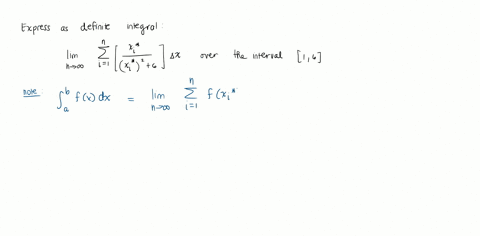 Express as definite integral:
lim n→∞ n Σ i=1 [ xi* / (xi*)² + 6 ] Δx over the interval [1,6]
note: ∫ₐᵇ f(x) dx = lim n→∞ n Σ i=1 f(xi*